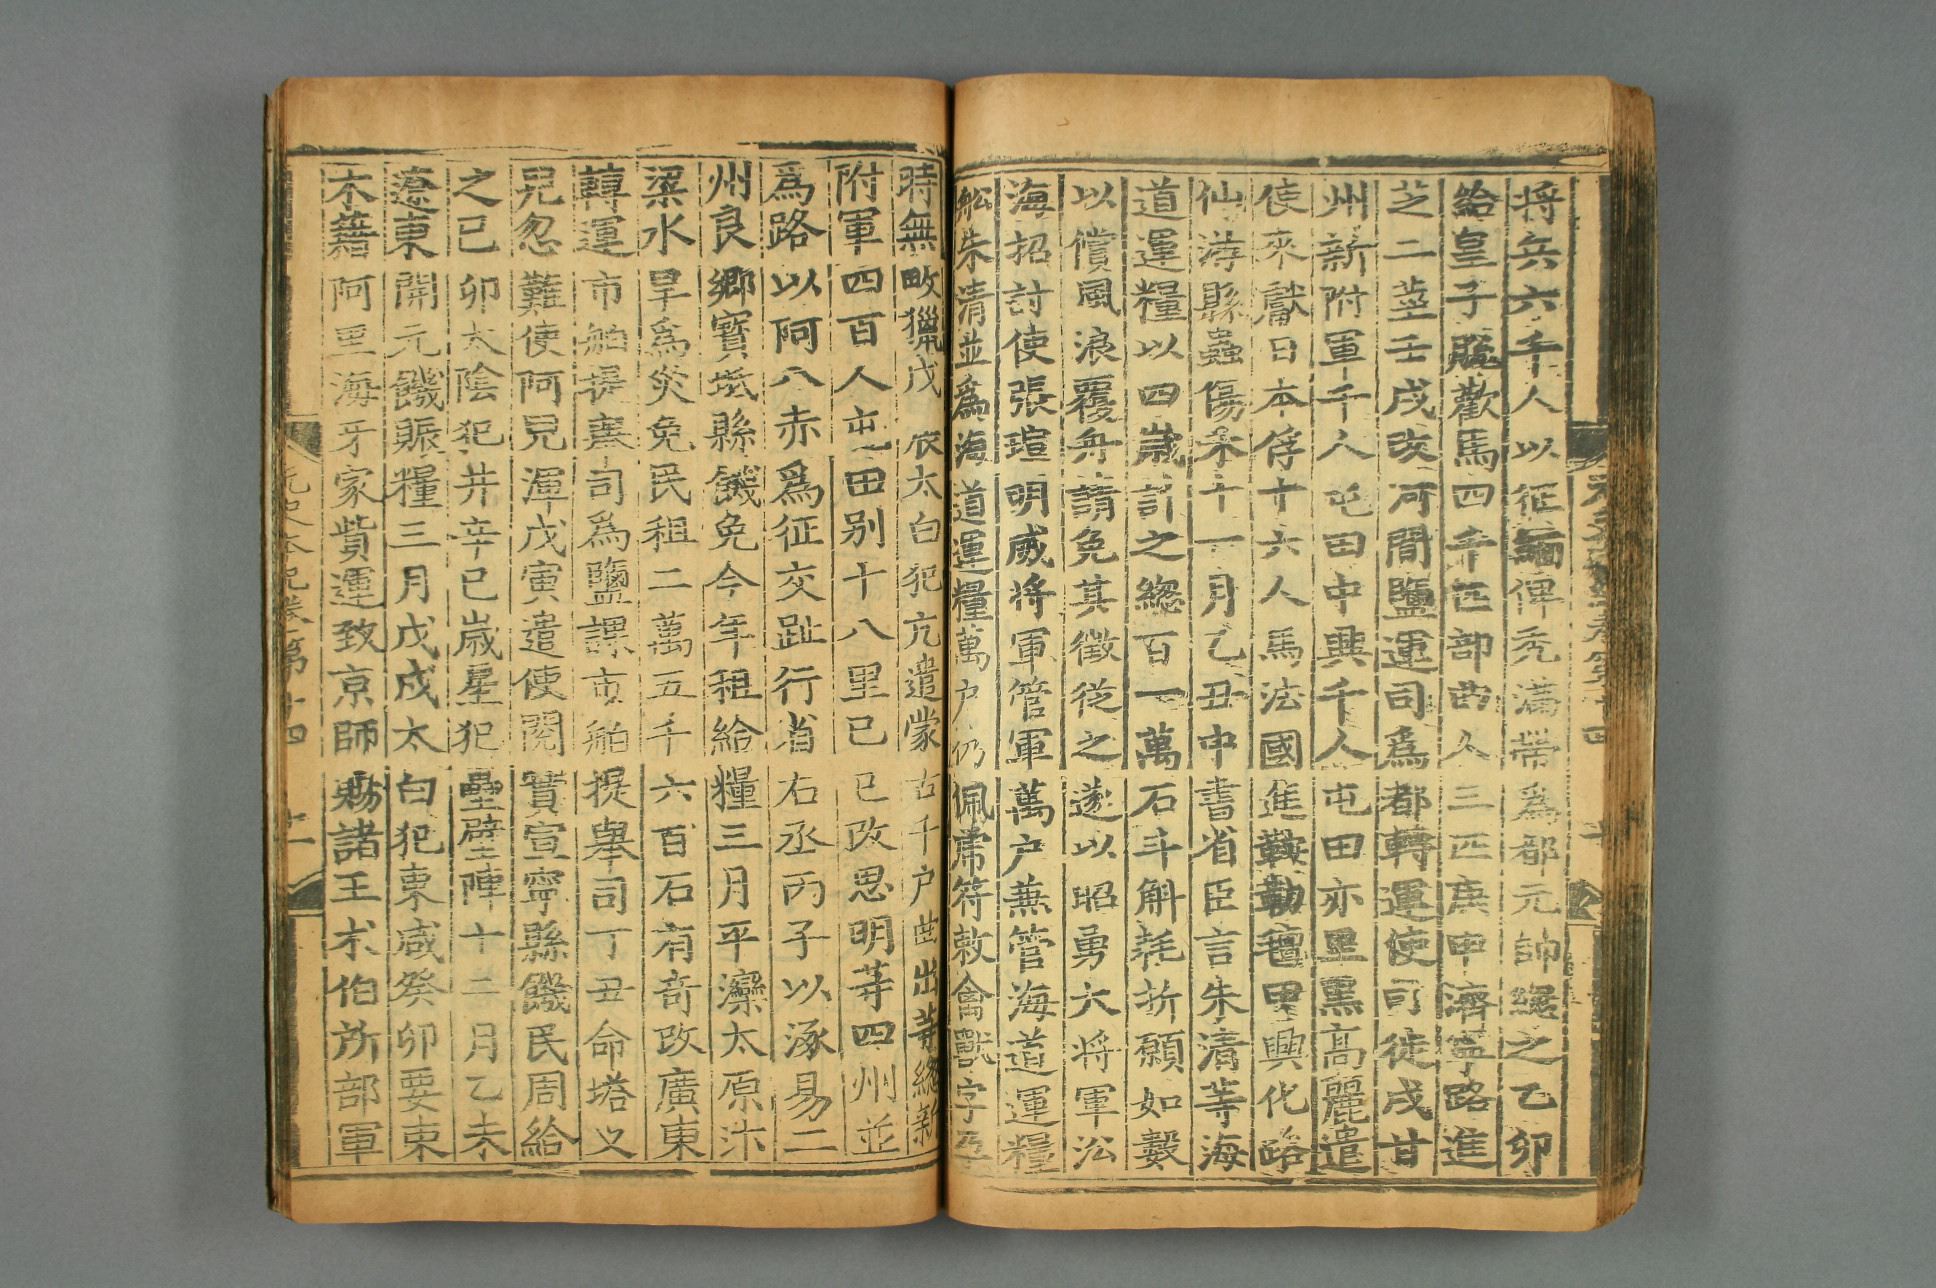 将兵六千人以征緬俾禿滿帶爲都元帥緫之乙卯
給皇子脱歡馬四千匹部曲人三匹庚申濟寧路進
芝二莖壬戌改河間鹽運司爲都轉運使司徙戍甘
州新附軍千人屯田中興千人屯田亦里黑高麗遣
使來獻日本俘十六人馬法國進鞍勒氊甲興化路
仙游縣蟲傷禾十一月乙丑中書省臣言朱清等海
道運糧以四歲計之緫百一萬石斗斛耗折願如數
以償風浪覆舟請免其徵從之遂以昭勇大将軍㳂
海招討使張瑄明威将軍管軍萬户兼管海道運糧
舩朱清並爲海道運糧萬户仍佩虎符敕禽獸字孕
時無畋獵戊辰太白犯亢遣蒙古千户曲出等緫新
附軍四百人屯田别十八里己巳改思明等四州並
爲路以阿八赤爲征交趾行省右丞丙子以涿易二
州良鄉寶坻縣饑免今年租給糧三月平灤太原汴
梁水旱爲災免民租二萬五千六百石有奇改廣東
轉運市舶提舉司爲鹽課市舶提舉司丁丑命塔义
兒忽難使阿兒渾戊寅遣使閱實宣寧縣饑民周給
之己卯太陰犯井辛巳歲星犯壘壁陣十二月乙未
遼東開元饑賑糧三月戊戌太白犯東咸癸卯要束
木籍阿里海牙家貲運致京師賜諸王朮伯所部軍
元史本紀卷第十四
十一